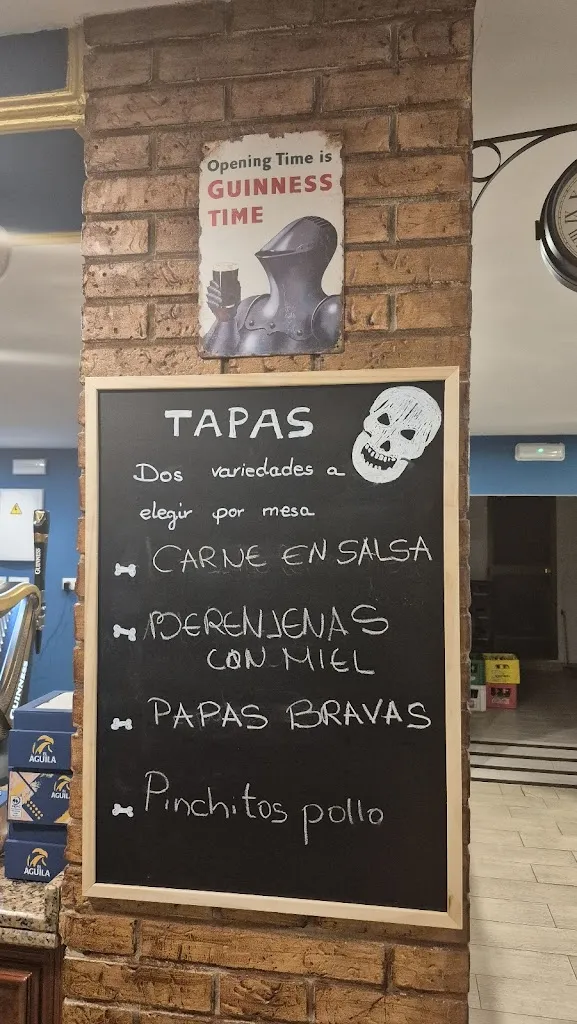 Opening Time is
GUINNESS
TIME
TAPAS
Dos variedades a
elegir por mesa
CARNE EN SALSA
BERENJENAS
CON MIEL
PAPAS BRAVAS
Pinchitos pollo
GUINNESS
GUINNESS
AGUILA
AGUILA
AGUILA